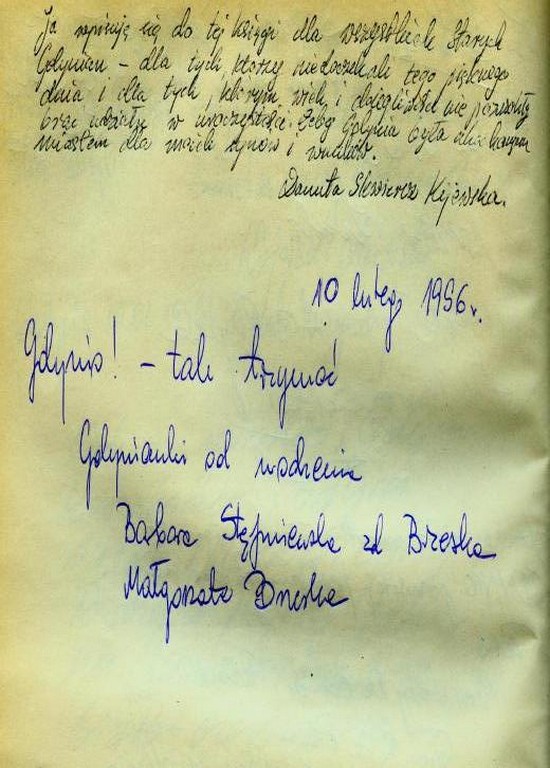 Ja wpisuję się do tej księgi dla wszystkich Starych
Gdynian – dla tych którzy nie doczekali tego pięknego
dnia i dla tych, którym wiek i nie pozwoliły
brać udziału w uroczystości. Żeby Gdynia była
miastem dla moich synów i wnuków.
Danuta Kijewska.
10 luteg 1996r.
Gdynio! – tak trzymać
Gdynianki od urodzenia
Barbara Stępniewska zd Brzeska
Małgorzata Brzeska